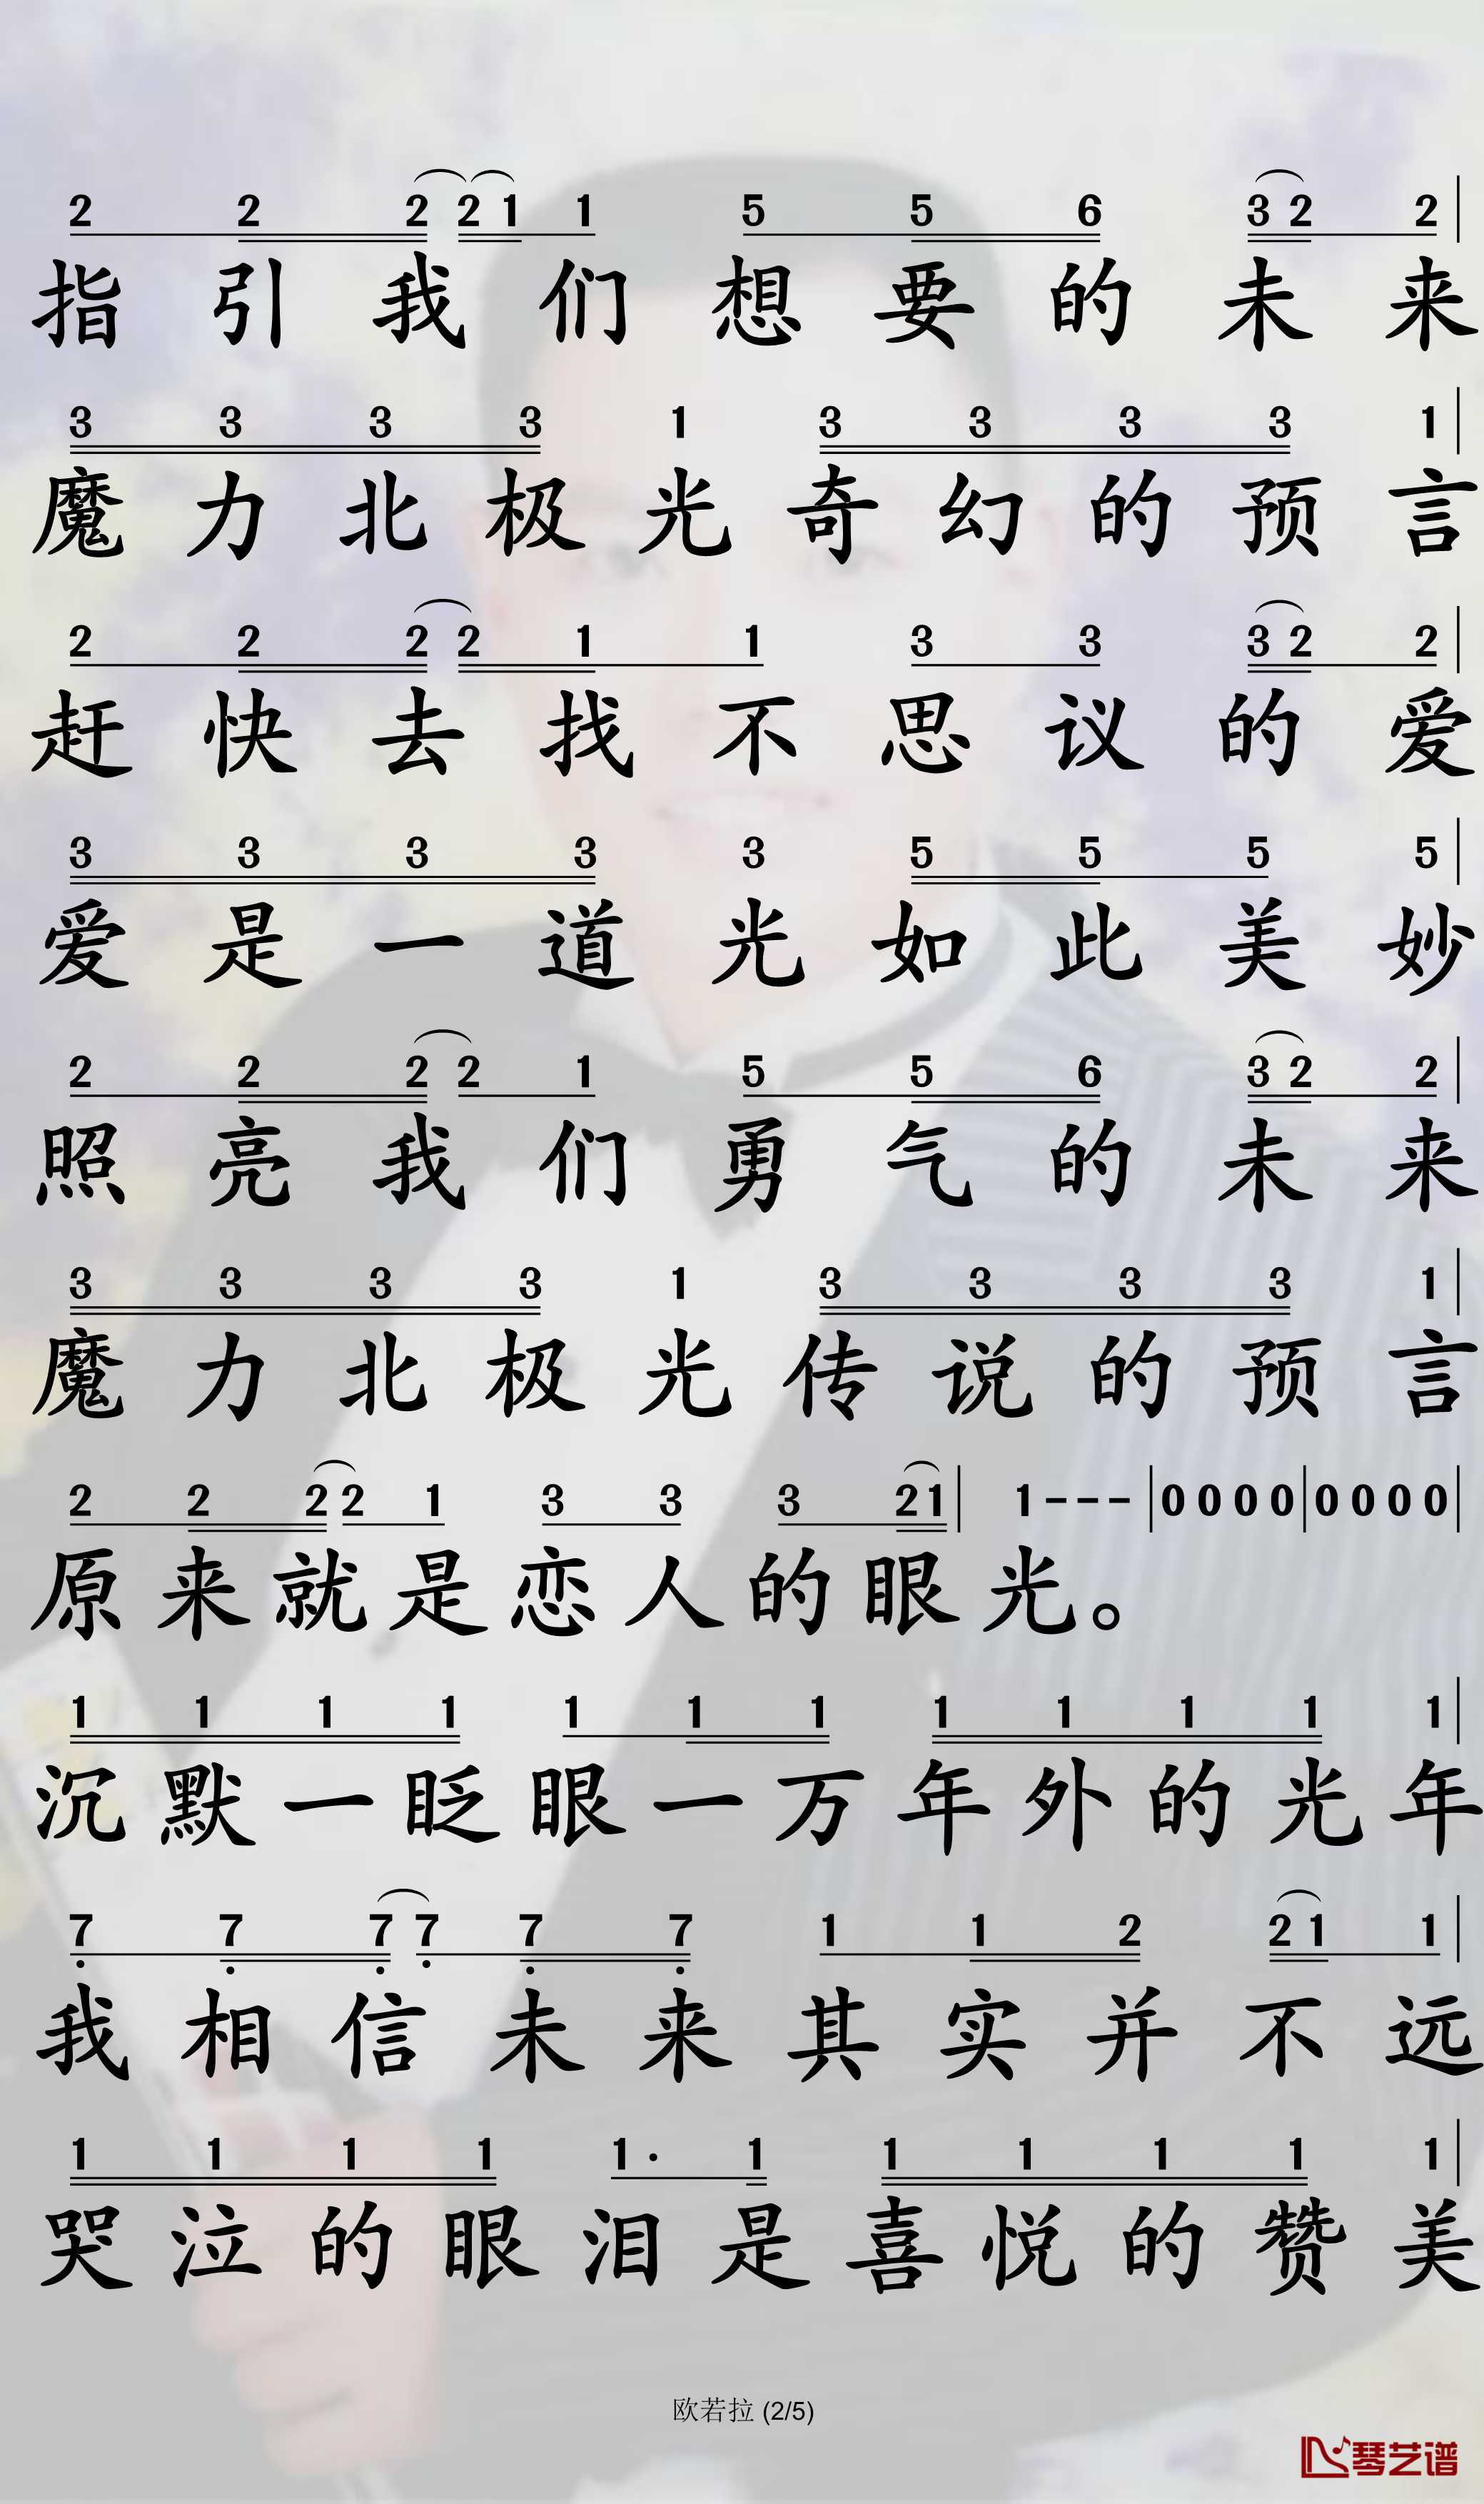 2 2 2 2 1 1 5 5 6 3 2 2|
指引我们想要的未来
3 3 3 3 1 3 3 3 3 1|
魔力北极光奇幻的预言
2 2 2 2 1 1 3 3 3 2 2|
赶快去找不思议的爱
3 3 3 3 3 5 5 5 5|
爱是一道光如此美妙
2 2 2 2 1 5 5 6 3 2 2|
照亮我们勇气的未来
3 3 3 3 1 3 3 3 3 1|
魔力北极光传说的预言
2 2 2 2 1 3 3 3 2 1| 1 - - - |0 0 0 0|0 0 0 0|
原来就是恋人的眼光。
1 1 1 1 1 1 1 1 1 1 1 1|
沉默一眨眼一万年外的光年
7 7 7 7 7 7 1 1 2 2 1 1|
我相信未来其实并不远
1 1 1 1 1· 1 1 1 1 1 1|
哭泣的眼泪是喜悦的赞美
欧若拉 (2/5)
琴艺谱